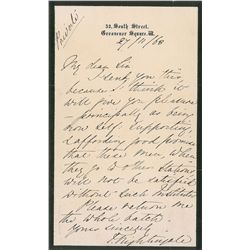 Private
32, South Street,
Grosvenor Square. W.
27/11/68
My dear Sir
I send you this,
because I think it
will give you pleasure
principally as being
now Self Supporting,
& affording good promise
that these men, when
they go to other Stations
will not be satisfied
without such Institutes
Please return me
the whole
Yours sincerely
F. Nightingale